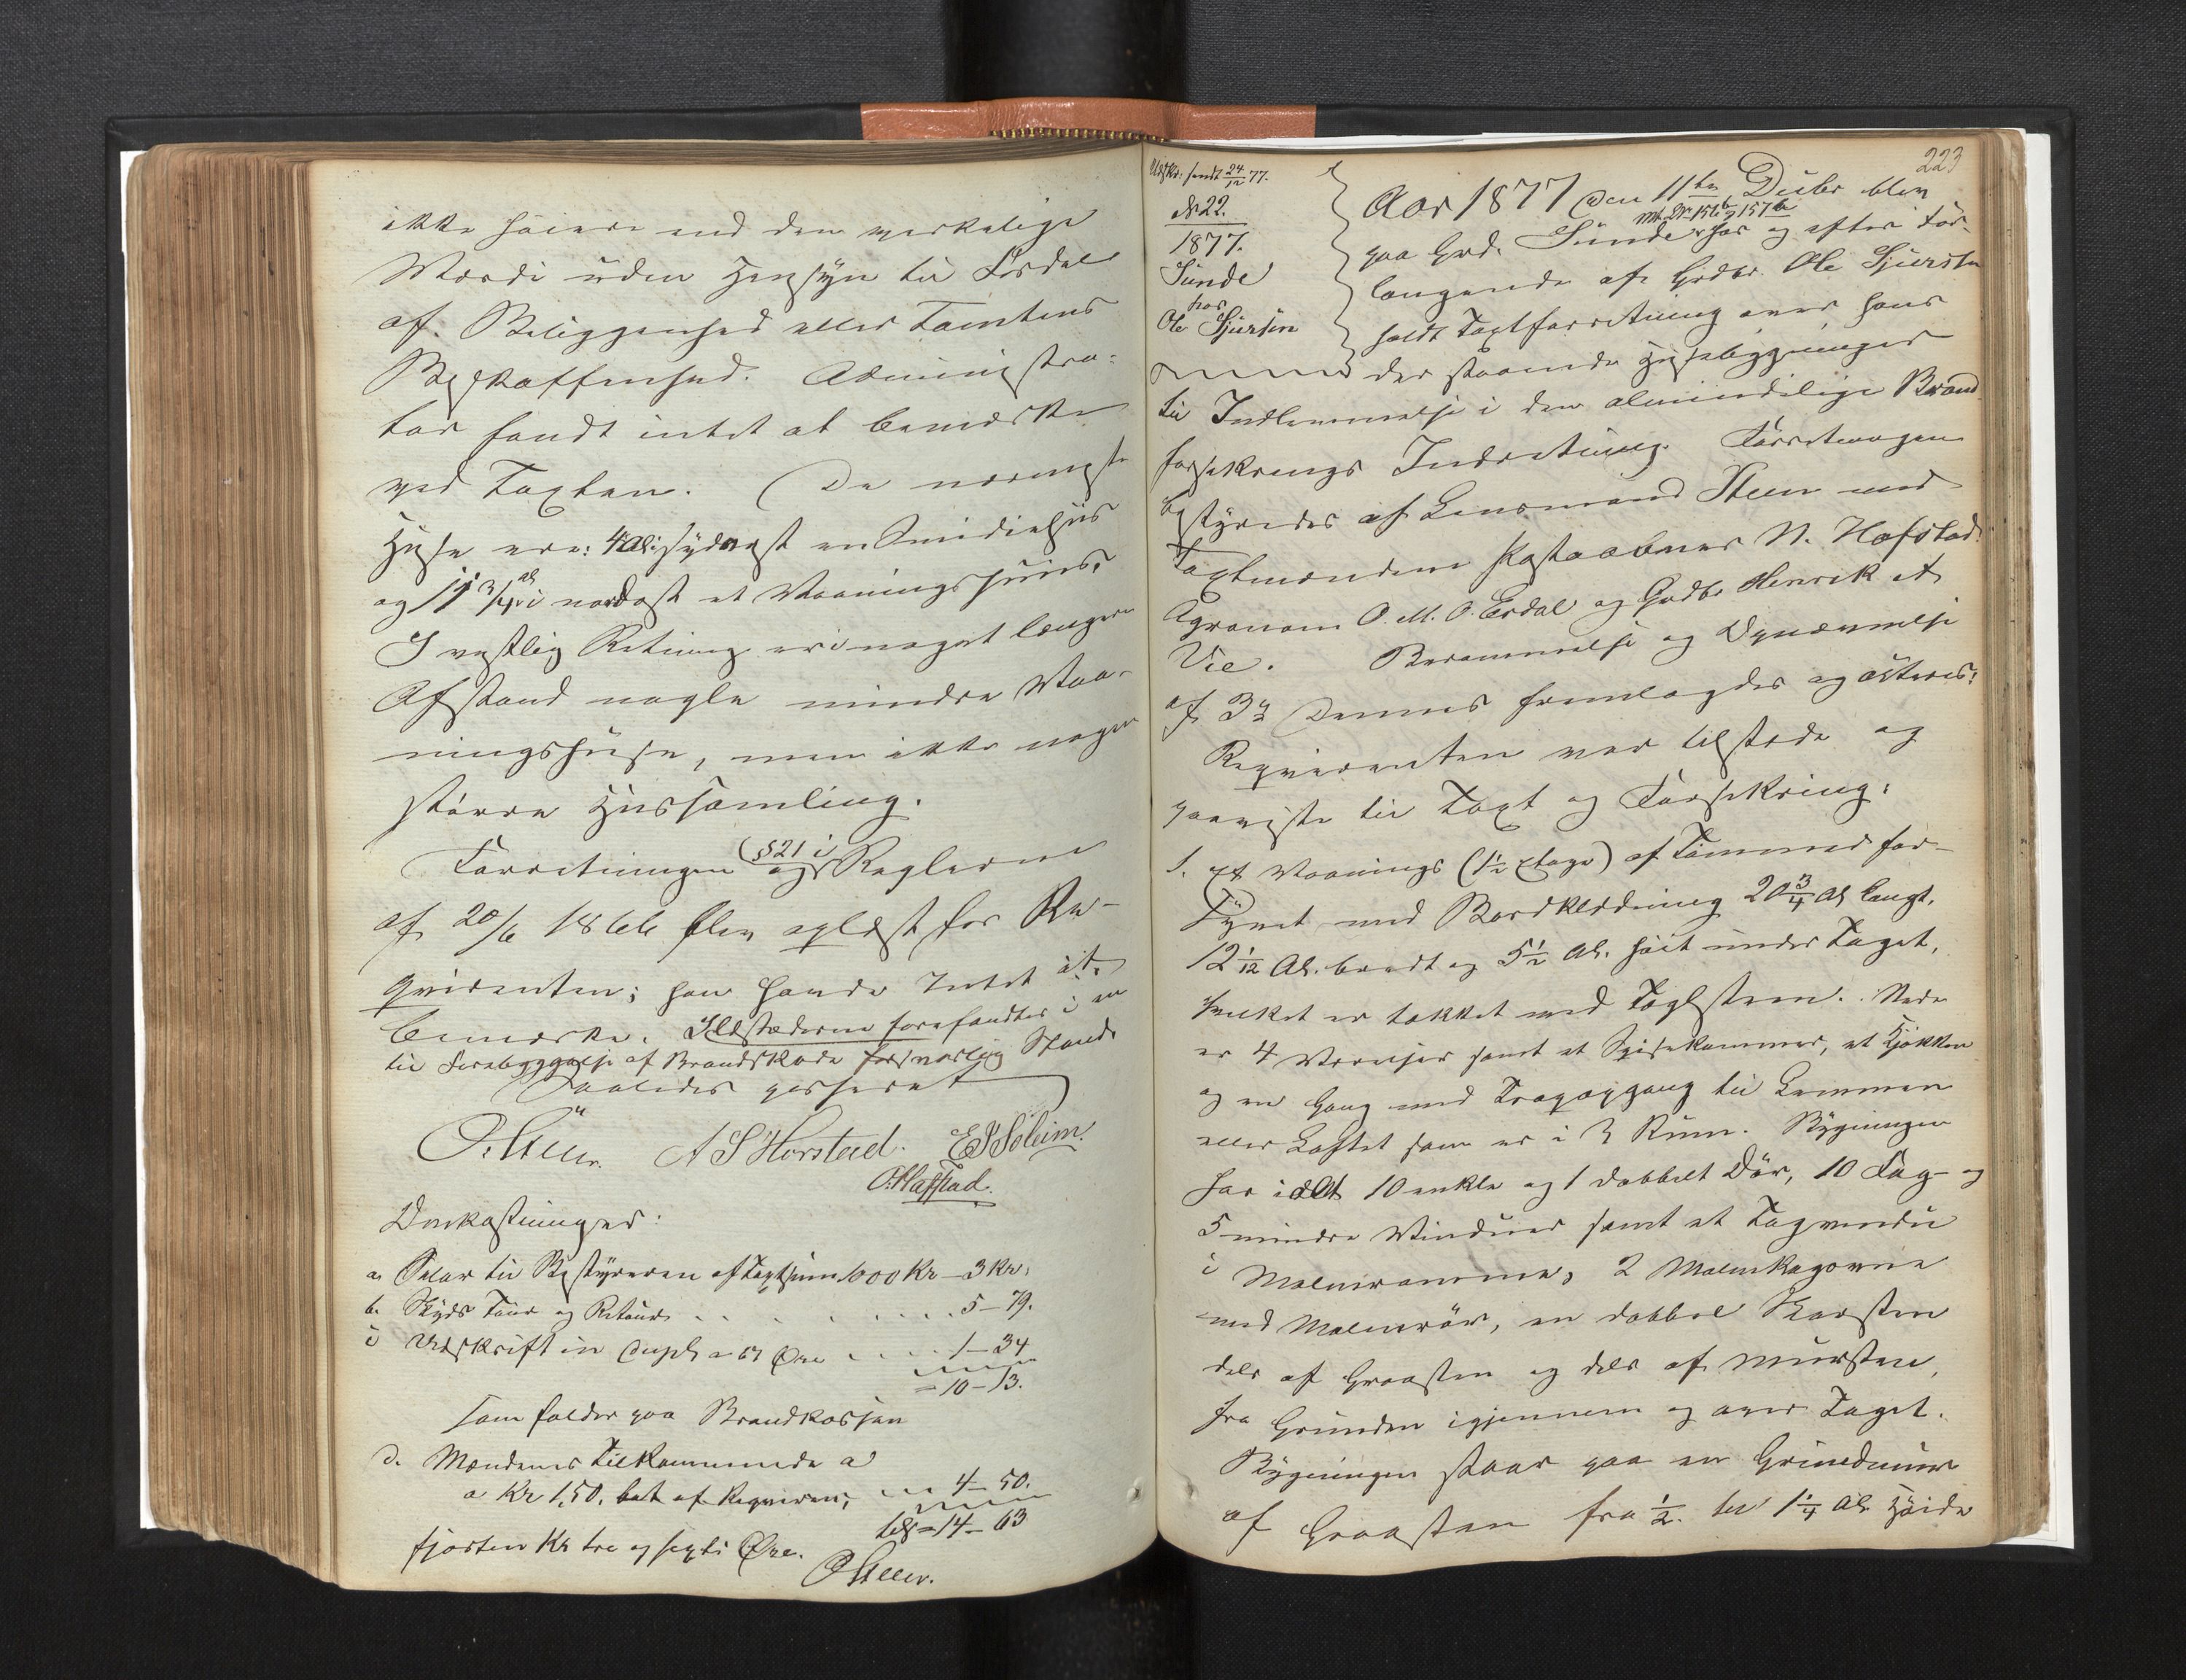 ikke høiere end den virkelige
Værdi uden Hensyn til Fordele
af Beliggenhed eller Tomtens
Beskaffenhed. Administra-
tor fandt intet at bemærke
ved Taxten. De nærmeste
Huse ere: 4 Al. i sydvest en Smidiehus
og 11 3/4 al i nordost et Vaaningshuus.
I vestlig Retning er i noget længere
Afstand nogle mindre Vaa-
ningshuse, men ikke nogen
større Hussamling.
Forretningen og (§ 21 i) Reglerne
af 20/6 1866 blev oplæst for Re-
qvirenten; han havde Intet at
bemærke. Ildstæderne forefandtes i en
til Forebyggelse af Brandskade forsvarlig Stand.
Saaledes passeret
O. Steen. A S Horstad. E J Soleim.
O. Hafstad.
Omkostninger:
a. Salær til Bestyreren af Taxtsum 1000 Kr — 3 Kr.
b. Skyds Tour og Retour . . . . . . 5 — 79.
c Udskrift in dupl. a 67 Øre . . . . 1 — 34
= 10 — 13.
som falder paa Brandkassen
d. Mændenes Tilkommende a
a Kr 1,50. bet. af Reqvirenten 4 — 50.
tils = 14 — 63
fjorten Kr tre og sexti Øre.
O Steen.
223
Udskr. sendt 24/12 77.
No 22.
1877.
Sunde
hos
Ole Sjursen
Aar 1877 den 11te Decbr blev
paa Grd. Sunde Mt. No 156b, 157b hos og efter For-
langende af Grdbr. Ole Sjursen
holdt Taxtforretning over hans
der staaende Husebygninger
til Indlemmelse i den almindelige Brand
forsikrings Indretning. Forretningen
bestyredes af Lensmand Steen med
Taxtmændene Postaabner N. Hafstad
Agronom O. M. O. Erdal og Grdbr Henrik A
Vie. Berammelse og Opnævnelse
af 3de Dennes fremlagdes og
Reqvirenten var tilstede og
paaviste til Taxt og Forsikring:
1. et Vaanings (1½ Etage) af Tømmer for-
synet med Bordklædning 20 3/4 Al langt,
12 1/12 Al. bredt og 5½ Al. høit under Taget,
hvilket er tækket med Taglsteen. Nede
er 4 Værelser samt et Spisekammer, et Kjøkken
og en Gang med Trapopgang til Lemmen
eller Loftet som er i 3 Rum. Bygningen
har ialt 10 enkle og 1 dobbelt Dør, 10 Fag og
5 mindre Vinduer samt et Tagvindu
i Malmramme, 2 Malmkagovne
med Malmrør, en dobbel Skorsten
dels af Graasten og dels af Mursten,
fra Grunden igjennem og over Taget.
Bygningen staar paa en Grundmur
af Graasten fra ½ til 1¼ Al Høide